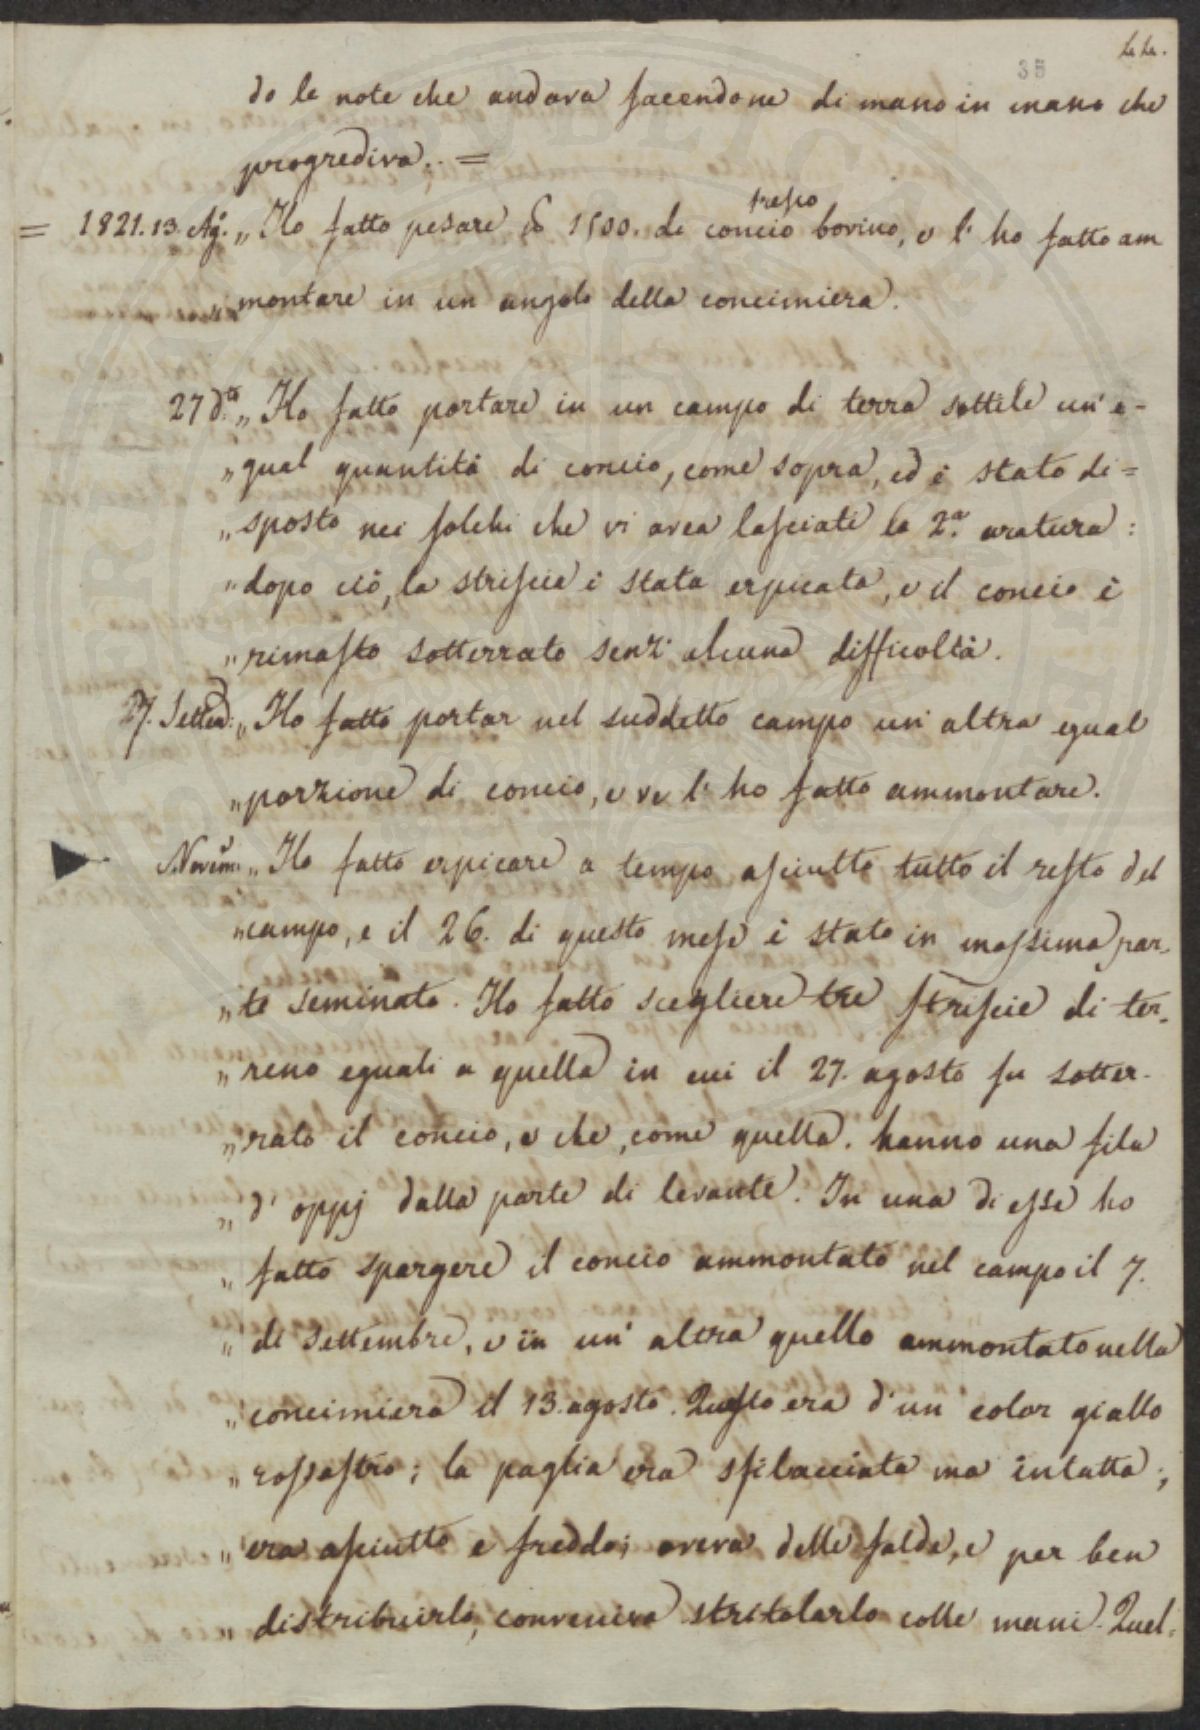 44.
35
do le note che andava facendone di mano in mano che
progrediva. =
= 1821. 13. Ag.° „ Ho fatto pesare 1500. di concio fresco bovino, e l' ho fatto am
„ montare in un angolo della concimiera.
27 d.to „ Ho fatto portare in un campo di terra sottile un' e-
„ gual quantità di concio, come sopra, ed è stato di=
„ sposto nei solchi che vi avea lasciati la 2.a aratura:
„ dopo ciò, la striscia è stata erpicata, e il concio è
„ rimasto sotterrato senz' alcuna difficoltà.
7. Setteb: „ Ho fatto portar nel suddetto campo un' altra egual
„ porzione di concio, e ve l' ho fatto ammontare.
Novem: „ Ho fatto erpicare a tempo asciutto tutto il resto del
„ campo, e il 26. di questo mese è stato in massima par-
„ te seminato. Ho fatto scegliere tre striscie di ter-
„ reno eguali a quella in cui il 27. agosto fu sotter-
„ rato il concio, e che, come quella, hanno una fila
„ d' oppj dalla parte di levante. In una di esse ho
„ fatto spargere il concio ammontato nel campo il 7.
„ di Settembre, e in un' altra quello ammontato nella
„ concimiera il 13. agosto. Questo era d' un color giallo
„ rossastro; la paglia era sfilacciata ma intatta;
„ era asciutto e freddo; aveva delle falde, e per ben
„ distribuirlo, conveniva stritolarlo colle mani. Quel-